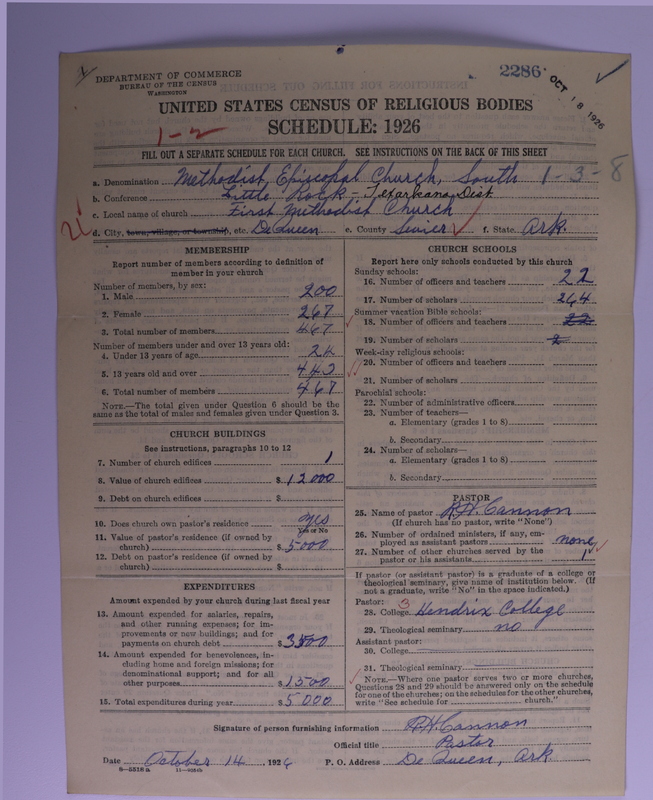 DEPARTMENT OF COMMERCE
BUREAU OF THE CENSUS
WASHINGTON
2286
OCT 18 1926
UNITED STATES CENSUS OF RELIGIOUS BODIES
SCHEDULE: 1926
1-2
FILL OUT A SEPARATE SCHEDULE FOR EACH CHURCH. SEE INSTRUCTIONS ON THE BACK OF THIS SHEET
a. Denomination Methodist Episcopal Church, South 1-3-8
b. Conference Little Rock - Texarkana Dist.
c. Local name of church First Methodist Church
d. City, town, village, or township, etc. De Queen e. County Sevier f. State Ark.
MEMBERSHIP
Report number of members according to definition of
member in your church
Number of members, by sex:
1. Male 200
2. Female 267
3. Total number of members 467
Number of members under and over 13 years old:
4. Under 13 years of age 24
5. 13 years old and over 443
6. Total number of members 467
NOTE.—The total given under Question 6 should be the
same as the total of males and females given under Question 3.
CHURCH BUILDINGS
See instructions, paragraphs 10 to 12
7. Number of church edifices 1
8. Value of church edifices $12000
9. Debt on church edifices $
10. Does church own pastor's residence yes
Yes or No
11. Value of pastor's residence (if owned by
church) $5000
12. Debt on pastor's residence (if owned by
church) $
EXPENDITURES
Amount expended by your church during last fiscal year
13. Amount expended for salaries, repairs,
and other running expenses; for im-
provements or new buildings; and for
payments on church debt $3500
14. Amount expended for benevolences, in-
cluding home and foreign missions; for
denominational support; and for all
other purposes $1500
15. Total expenditures during year $5000
CHURCH SCHOOLS
Report here only schools conducted by this church
Sunday schools:
16. Number of officers and teachers 22
17. Number of scholars 264
Summer vacation Bible schools:
18. Number of officers and teachers 22
19. Number of scholars
Week-day religious schools:
20. Number of officers and teachers
21. Number of scholars
Parochial schools:
22. Number of administrative officers
23. Number of teachers—
a. Elementary (grades 1 to 8)
b. Secondary
24. Number of scholars—
a. Elementary (grades 1 to 8)
b. Secondary
PASTOR
25. Name of pastor R.H. Cannon
(If church has no pastor, write "None")
26. Number of ordained ministers, if any, em-
ployed as assistant pastors none
27. Number of other churches served by the
pastor or his assistants 1
If pastor (or assistant pastor) is a graduate of a college or
theological seminary, give name of institution below. (If
not a graduate, write "No" in the space indicated.)
Pastor: 3
28. College Hendrix College
29. Theological seminary no
Assistant pastor:
30. College
31. Theological seminary
NOTE.—Where one pastor serves two or more churches,
Questions 28 and 29 should be answered only on the schedule
for one of the churches; on the schedules for the other churches,
write "See schedule for church."
Signature of person furnishing information R.H. Cannon
Official title Pastor
Date October 14, 1926 P. O. Address De Queen, Ark.
8-5518 a